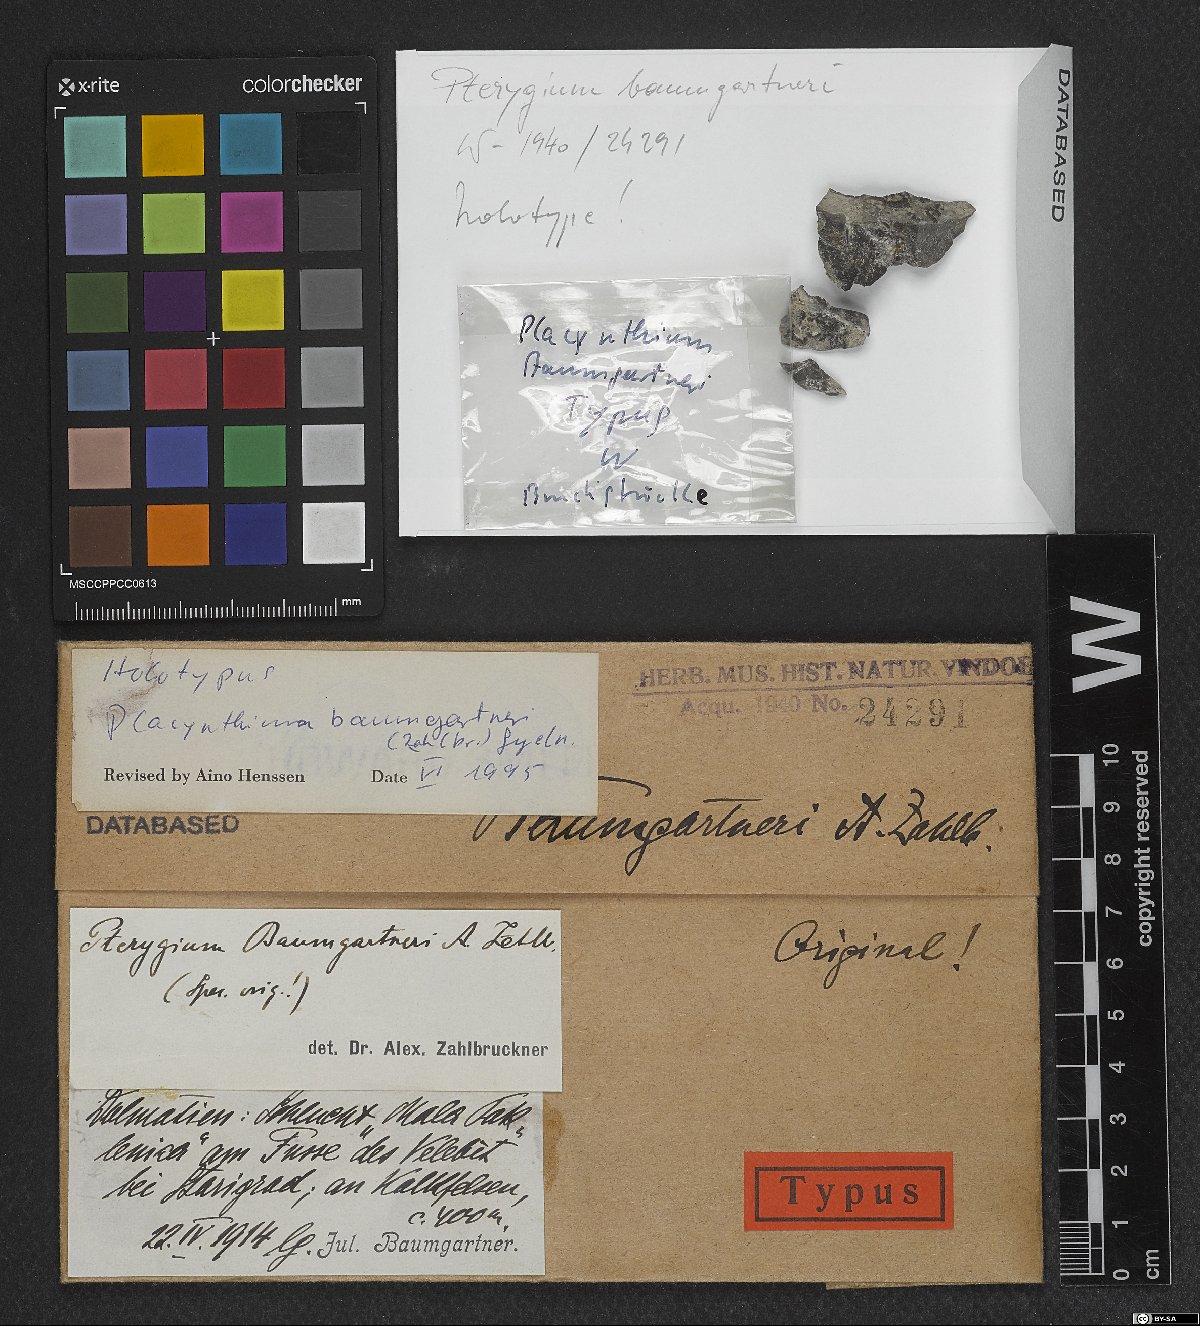 x·rite colorchecker
MSCCPPCC0613
mm
Pterygium baumgartneri
W - 1940 / 24291
holotype!
DATABASED
Placynthium
Baumgartneri
Typus
W
Bruchstücke
Holotypus
Placynthium baumgartneri
(Zahlbr.) Gyeln.
Revised by Aino Henssen Date VI 1995
HERB. MUS. HIST. NATUR. VINDOB
Acqu. 1940 No. 24291
DATABASED
Baumgartneri A. Zahlb.
Pterygium Baumgartneri A. Zahlb.
(Spec. orig.!)
det. Dr. Alex. Zahlbruckner
Original!
Dalmatien: Schlucht „Mala Pak-
lenica“ am Fusse des Velebit
bei Starigrad; an Kalkfelsen,
c. 400 m.
22. IV. 1914 lg. Jul. Baumgartner.
Typus
W
10
9
8
7
6
5
4
3
2
1
0
cm
copyright reserved
CC BY-SA